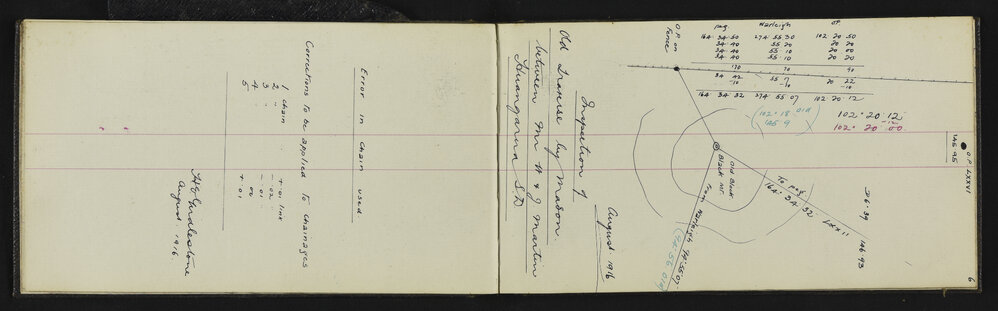 Error in chain used
Corrections to be applied to chainages
1 chain + .01 link
2 " - .02
3 " - .01
4 .00
5 + .01
August 1916
Inspection of
Old Traverse by Mason.
between Mt. H & J Martin
Huangarua S.D
August 1916
Peg. Harleigh OP.
164 34 50 274 55 30 102 20 50
34 40 55 20 20 20
34 40 55 10 20 00
34 40 55 10 20 20
170 70 90
34 42 55 7 20 22
-10 -10 -10
164 34 32 274 55 07 102 20 12
O.P. on
Fence
102° 18' old
146 9
102° 20' 12
-12
102° 20' 00
Old Black
Black Mt.
To peg LXXII
164° 34' 32
from Harleigh 94° 55' 07
(94 56 old)
O.P. LXXVI
146 95
376.39
146 93
6